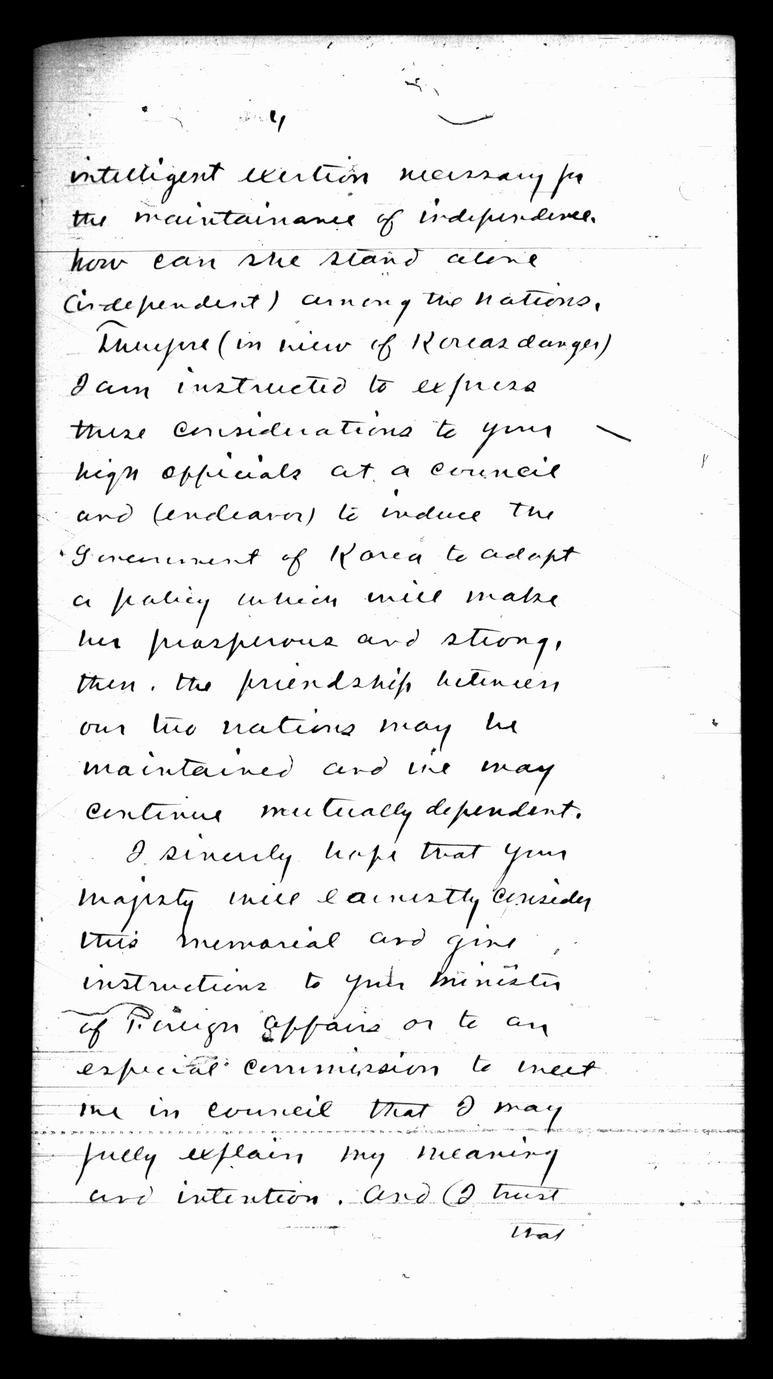 4
intelligent exertion necessary for
the maintainance of independence.
how can she stand alone
(independent) among the nations.
Therefore (in view of Koreas danger)
I am instructed to express
these considerations to your
high officials at a council
and (endeavor) to induce the
Government of Korea to adopt
a policy which will make
her prosperous and strong,
then. the friendship between
our two nations may be
maintained and we may
continue mutually dependent.
I sincerely hope that your
majesty will earnestly consider
this memorial and give
instructions to your minister
of Foreign affairs or to an
especial commission to meet
me in council that I may
fully explain my meaning
and intention. And (I trust
that